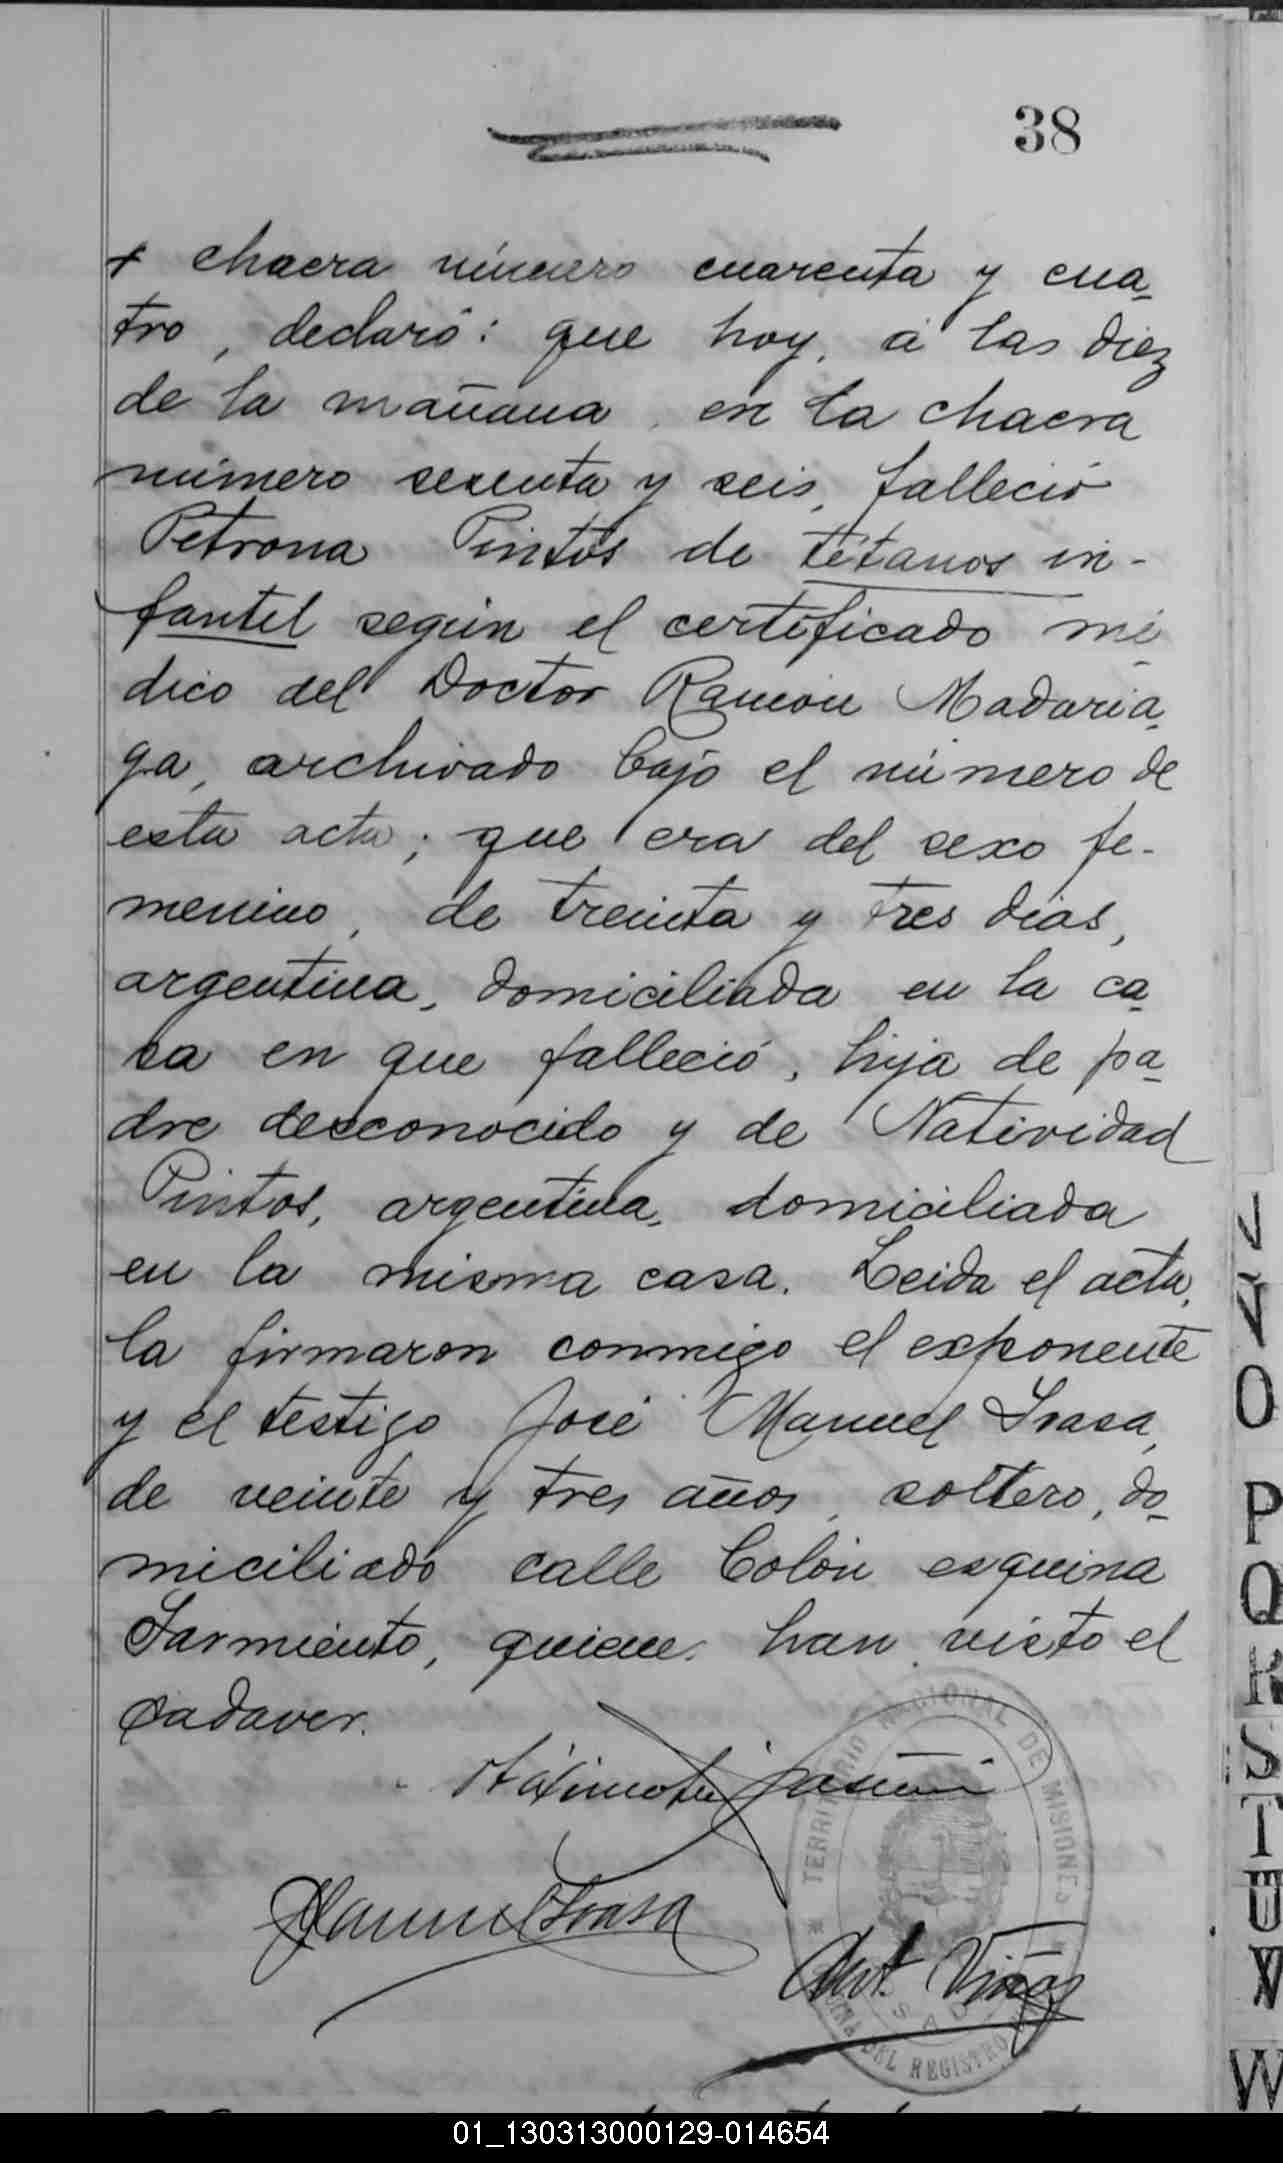 38
+ chacra número cuarenta y cua-
tro, declaró: que hoy, á las diez
de la mañana, en la chacra
número sesenta y seis, falleció
Petrona Pintos de tétanos in-
fantil según el certificado mé-
dico del Doctor Ramón Madaria-
ga, archivado bajo el número de
esta acta; que era del sexo fe-
menino, de treinta y tres dias,
argentina, domiciliada en la ca-
sa en que falleció, hija de pa-
dre desconocido y de Natividad
Pintos, argentina, domiciliada
en la misma casa. Leida el acta,
la firmaron conmigo el exponente
y el testigo José Manuel Irasa,
de veinte y tres años, soltero, do-
miciliado calle Colón esquina
Sarmiento, quienes han visto el
cadaver.
TERRITORIO NACIONAL DE MISIONES
JManuel Irasa
Ant. Viñas
DEL REGISTRO
J
V
O
P
Q
R
S
T
U
W
01_130313000129-014654